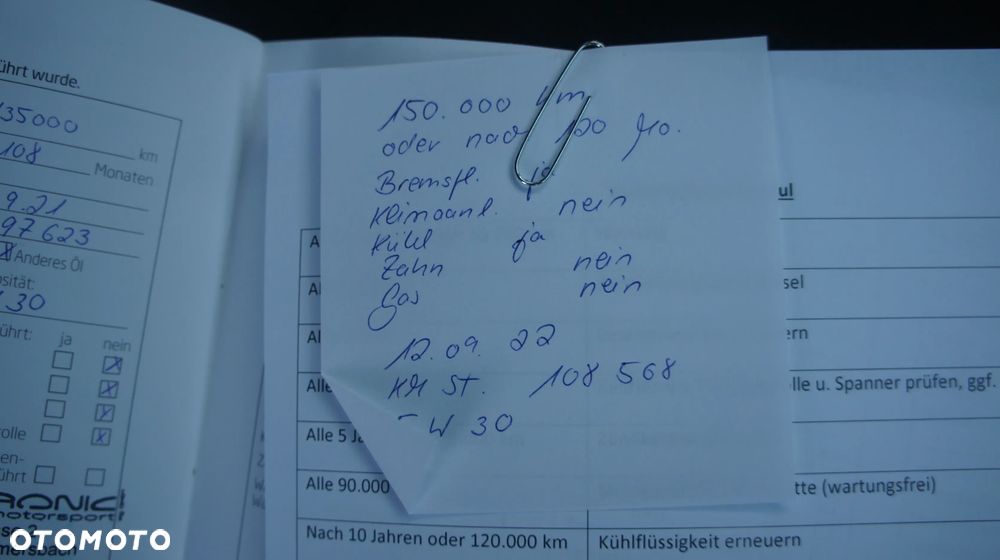 ührt wurde.
35000
km
108
Monaten
9.21
97623
Anderes Öl
30
ja nein
RONIC
motorsport
OTOMOTO
150.000 km
oder nach 120 Mo.
Bremsfl. ja
Klimaanl. nein
Kühl ja
Zahn nein
Gas nein
12.09.22
KM St. 108 568
- W 30
Alle 5 Ja
Alle 90.000
Nach 10 Jahren oder 120.000 km
ul
sel
ern
lle u. Spanner prüfen, ggf.
tte (wartungsfrei)
Kühlflüssigkeit erneuern